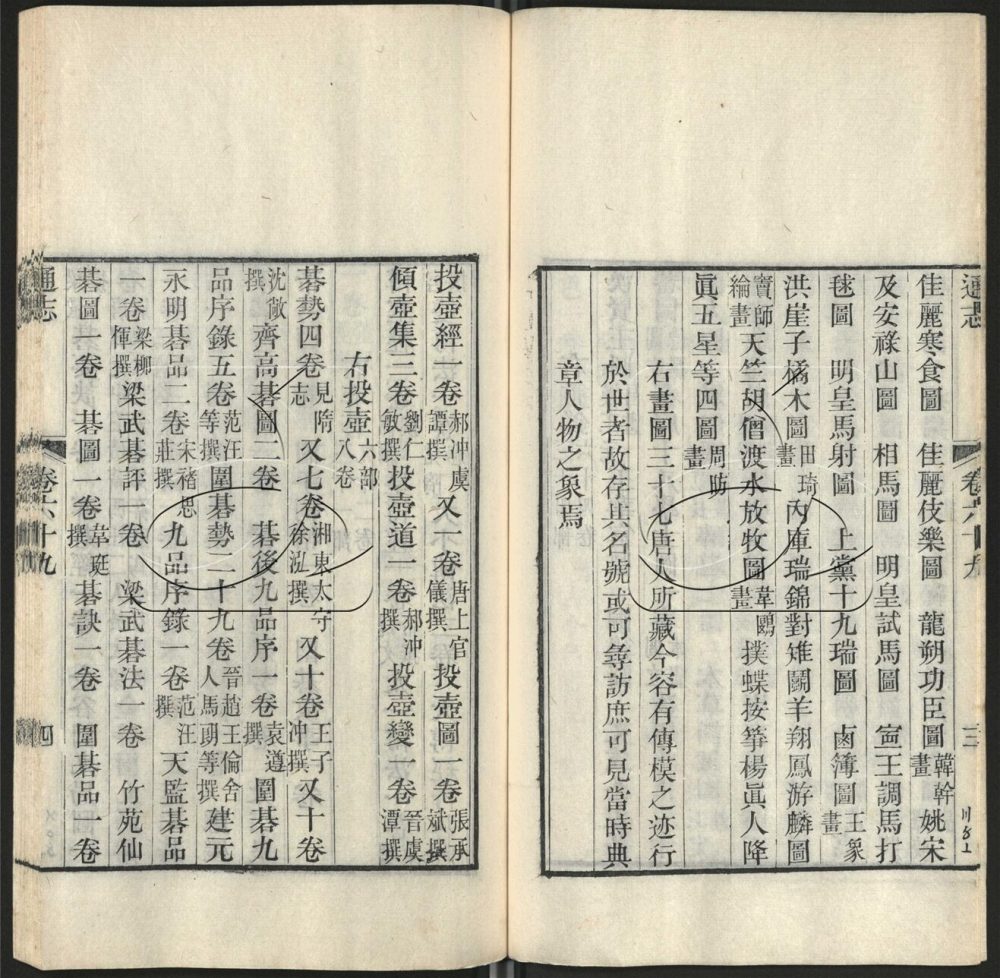 通志
卷六十九
三
佳麗寒食圖 佳麗伎樂圖 龍朔功臣圖韓幹畫姚宋
及安祿山圖 相馬圖 明皇試馬圖 寍王調馬打
毬圖 明皇馬射圖 上黨十九瑞圖 鹵簿圖王象畫
洪崖子橘木圖田琦畫內庫瑞錦對雉鬭羊翔鳳游麟圖
竇師綸畫天竺胡僧渡水放牧圖韋鷗畫撲蝶按箏楊眞人降
眞五星等四圖周昉畫
右畫圖三十七唐人所藏今容有傳模之迹行
於世者故存其名號或可尋訪庶可見當時典
章人物之象焉
投壺經一卷郝冲虞譚撰又一卷唐上官儀撰投壺圖一卷張承斌撰
傾壺集三卷劉仁敏撰投壺道一卷郝冲撰投壺變一卷晉虞潭撰
右投壺六部八卷
碁勢四卷見隋志又七卷湘東太守徐泓撰又十卷王子冲撰又十卷
沈敞撰齊高碁圖二卷 碁後九品序一卷袁遵撰圍碁九
品序錄五卷范汪等撰圍碁勢二十九卷晉趙王倫舍人馬朗等撰建元
永明碁品二卷宋褚思莊撰九品序錄一卷范汪撰天監碁品
一卷梁柳惲撰梁武碁評一卷 梁武碁法一卷 竹苑仙
碁圖一卷 碁圖一卷韋珽撰碁訣一卷 圍碁品一卷
通志
卷六十九
四